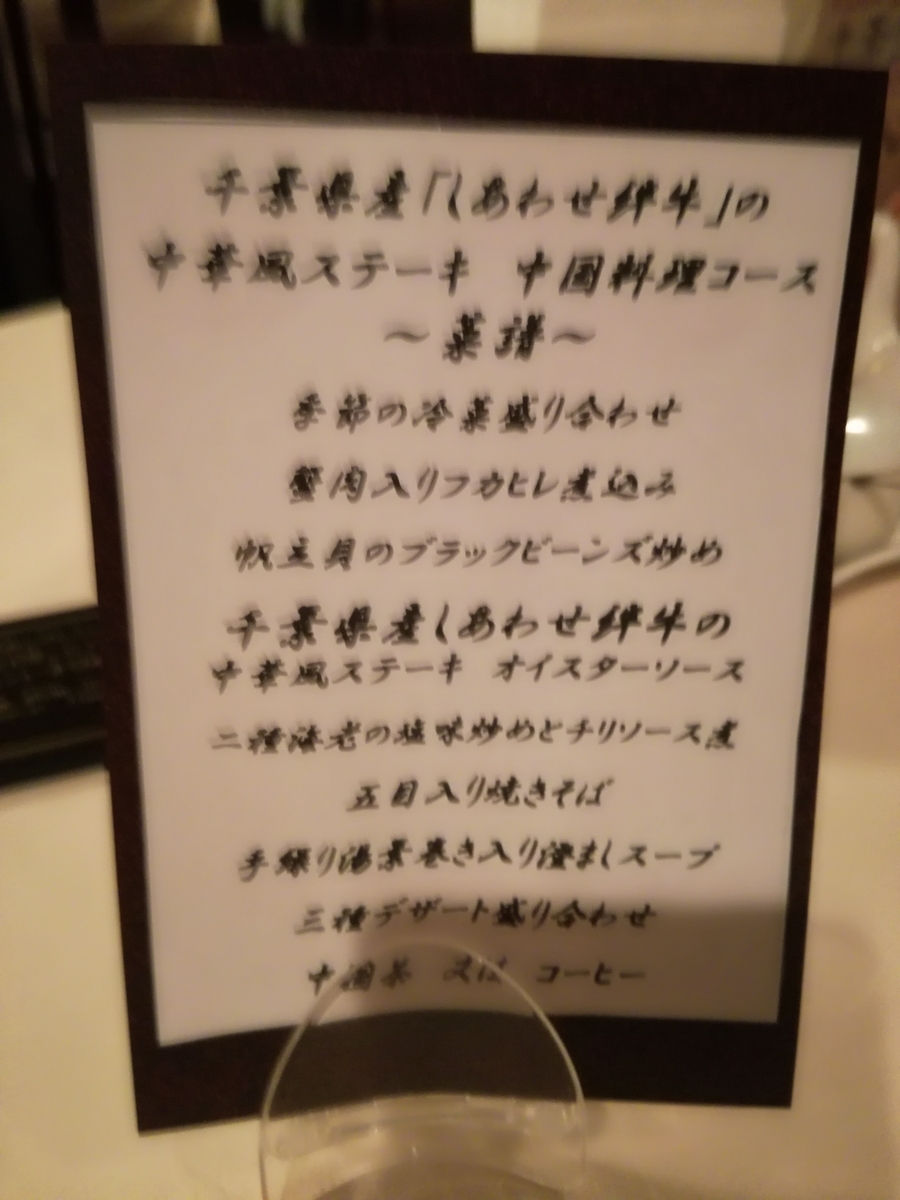 千葉県産「しあわせ絆牛」の
中華風ステーキ 中国料理コース
～菜譜～
季節の冷菜盛り合わせ
蟹肉入りフカヒレ煮込み
帆立貝のブラックビーンズ炒め
千葉県産しあわせ絆牛の
中華風ステーキ オイスターソース
二種海老の塩味炒めとチリソース煮
五目入り焼きそば
手繰り湯葉巻き入り澄ましスープ
三種デザート盛り合わせ
中国茶 又は コーヒー